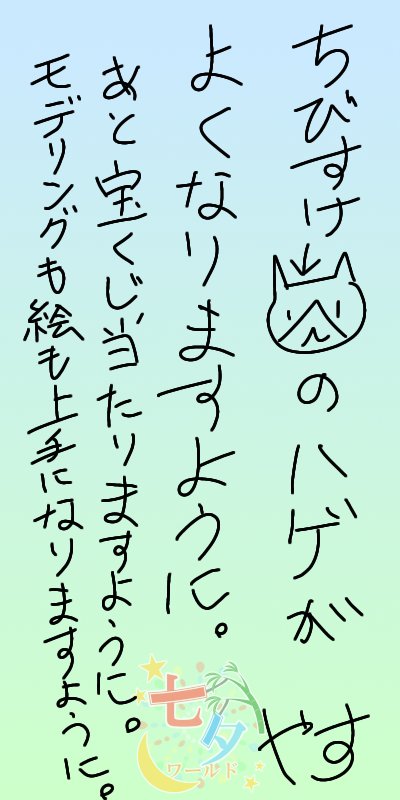 ちびすけ↓のハゲが
よくなりますように。
あと宝くじ当たりますように。
モデリングも絵も上手になりますように。
やす
七夕
ワールド